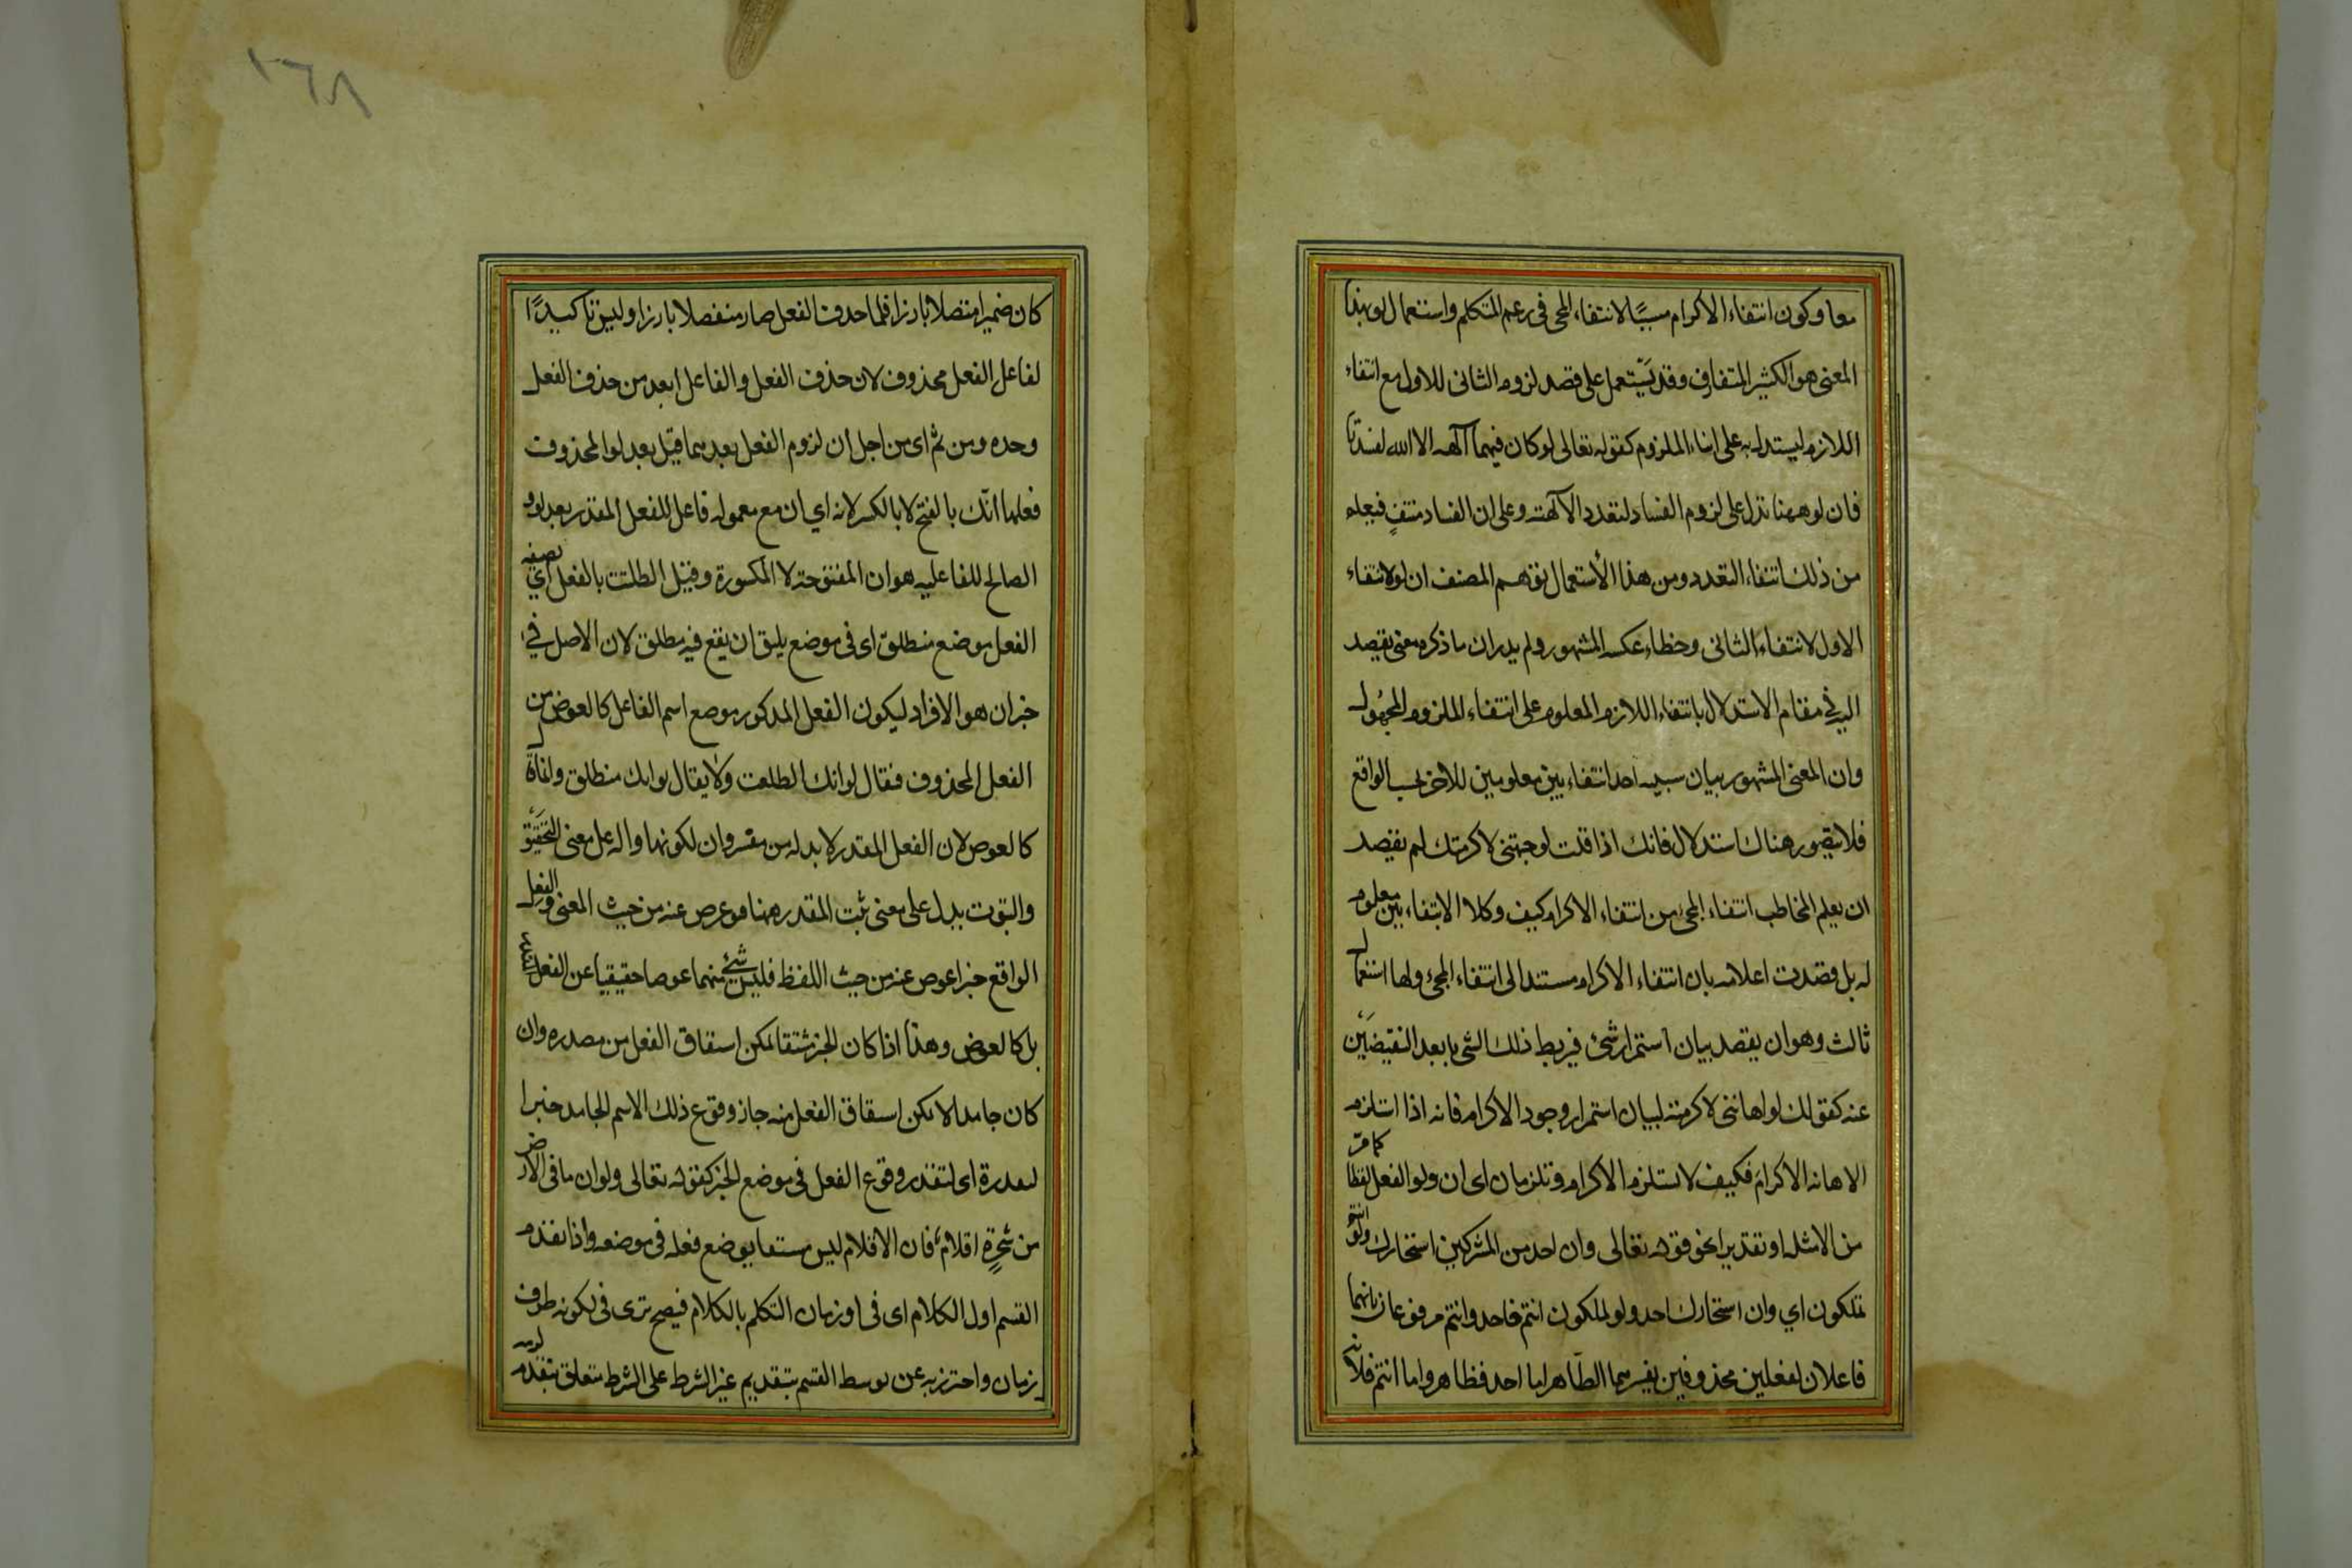 معا وكون انتفاء الاكرام مسببًا لانتفاء المجى فى زعم المتكلم واستعمال لو بهذا
المعنى هو الكثير المتعارف وقد يستعمل على قصد لزوم الثانى للاول مع انتفاء
اللازم ليستدل به على انتفاء الملزوم كقوله تعالى لو كان فيهما آلهه الا الله لفسدتا
فان لو ههنا تدل على لزوم الفساد لتعدد الآلهة وعلى ان الفساد منتفٍ فيعلم
من ذلك انتفاء التعدد ومن هذا الأستعمال توهم المصنف ان لو لانتفاء
الاول لانتفاء الثانى وخطاء عكسه المشهور ولم يدر ان ما ذكره معنى يقصد
اليه في مقام الاستدلال بانتفاء اللازم المعلوم على انتفاء الملزوم المجهول
وان المعنى المشهور بيان سببيه احد انتفاء بين معلومين للاخر بحسب الواقع
فلا يتصور هناك استدلال فانك اذا قلت لو جئتنى لاكرمتك لم تقصد
ان يعلم المخاطب انتفاء المجى من انتفاء الاكرام كيف وكلا الانتفاء بين معلوم
له بل قصدت اعلامه بان انتفاء الاكرام مستند الى انتفاء المجئ ولها استعمال
ثالث وهو ان يقصد بيان استمرار شئ فيربط ذلك الشى بابعد النقيضَين
عنه كقولك لو اهاننى لاكرمته لبيان استمرار وجود الاكرام فانه اذا استلزم
الاهانه الاكرام فكيف لا يستلزم الاكرام وتلزمان اى ان ولو الفعل لفظا كما مرّ
من الامثله او تقديرا نحو قوله تعالى وان احد من المشركين استجارك ولو انتم
تملكون اي وان استجارك احد ولو تملكون انتم فاحد وانتم مرفوعان بانهما
فاعلان لفعلين محذوفين يفسرهما الظاهر اما احد فظاهر واما انتم فلانه
١٦٨
كان ضميرا متصلا بارزا فلما حذف الفعل صار منفصلا بارزا وليس تاكيدًا
لفاعل الفعل محذوف لان حذف الفعل والفاعل ابعد من حذف الفعل
وحده ومن ثم اى من اجل ان لزوم الفعل بعدهما قيل بعد لو المحذوف
فعلها انّك بالفتح لا بالكسر لانه اي ان مع معموله فاعل للفعل المقدر بعد لو و
الصالح للفاعليه هو ان المفتوحة لا المكسورة وقيل انطلقت بالفعل اي بصيغه
الفعل موضع منطلق اى فى موضع يليق ان يقع فيه منطلق لان الاصل في
خبر ان هو الافراد ليكون الفعل المذكور موضع اسم الفاعل كالعوض من
الفعل المحذوف فيقال لو انك انطلقت ولا يقال لو انك منطلق وانما قال
كالعوض لان الفعل المقدر لا بد له من مفسر وان لكونها دالة على معنى التحقيق
والثبوت يدل على معنى ثبت المقدر ههنا فهو عوض عنه من حيث المعنى والفعل
الواقع خبرا عوض عنه من حيث اللفظ فليس شئ منهما عوضا حقيقيا عن الفعل
بل كالعوض وهذا اذا كان الخبر مشتقا يمكن اشتقاق الفعل من مصدره وان
كان جامدا لا يمكن اشتقاق الفعل منه جاز وقوع ذلك الاسم الجامد خبرا
لتعذره اى لتعذر وقوع الفعل فى موضع الخبر كقوله تعالى ولو ان ما فى الارض
من شجرةٍ اقلامٌ فان الاقلام ليس مشتقا يوضع فعله فى موضعه واذا تقدم
القسم اول الكلام اى فى اول زمان التكلم بالكلام فيصح ترى فى لكونه ظرف
زمان واحترز به عن توسط القسم بتقديم غير الشرط على الشرط متعلق بتقدم